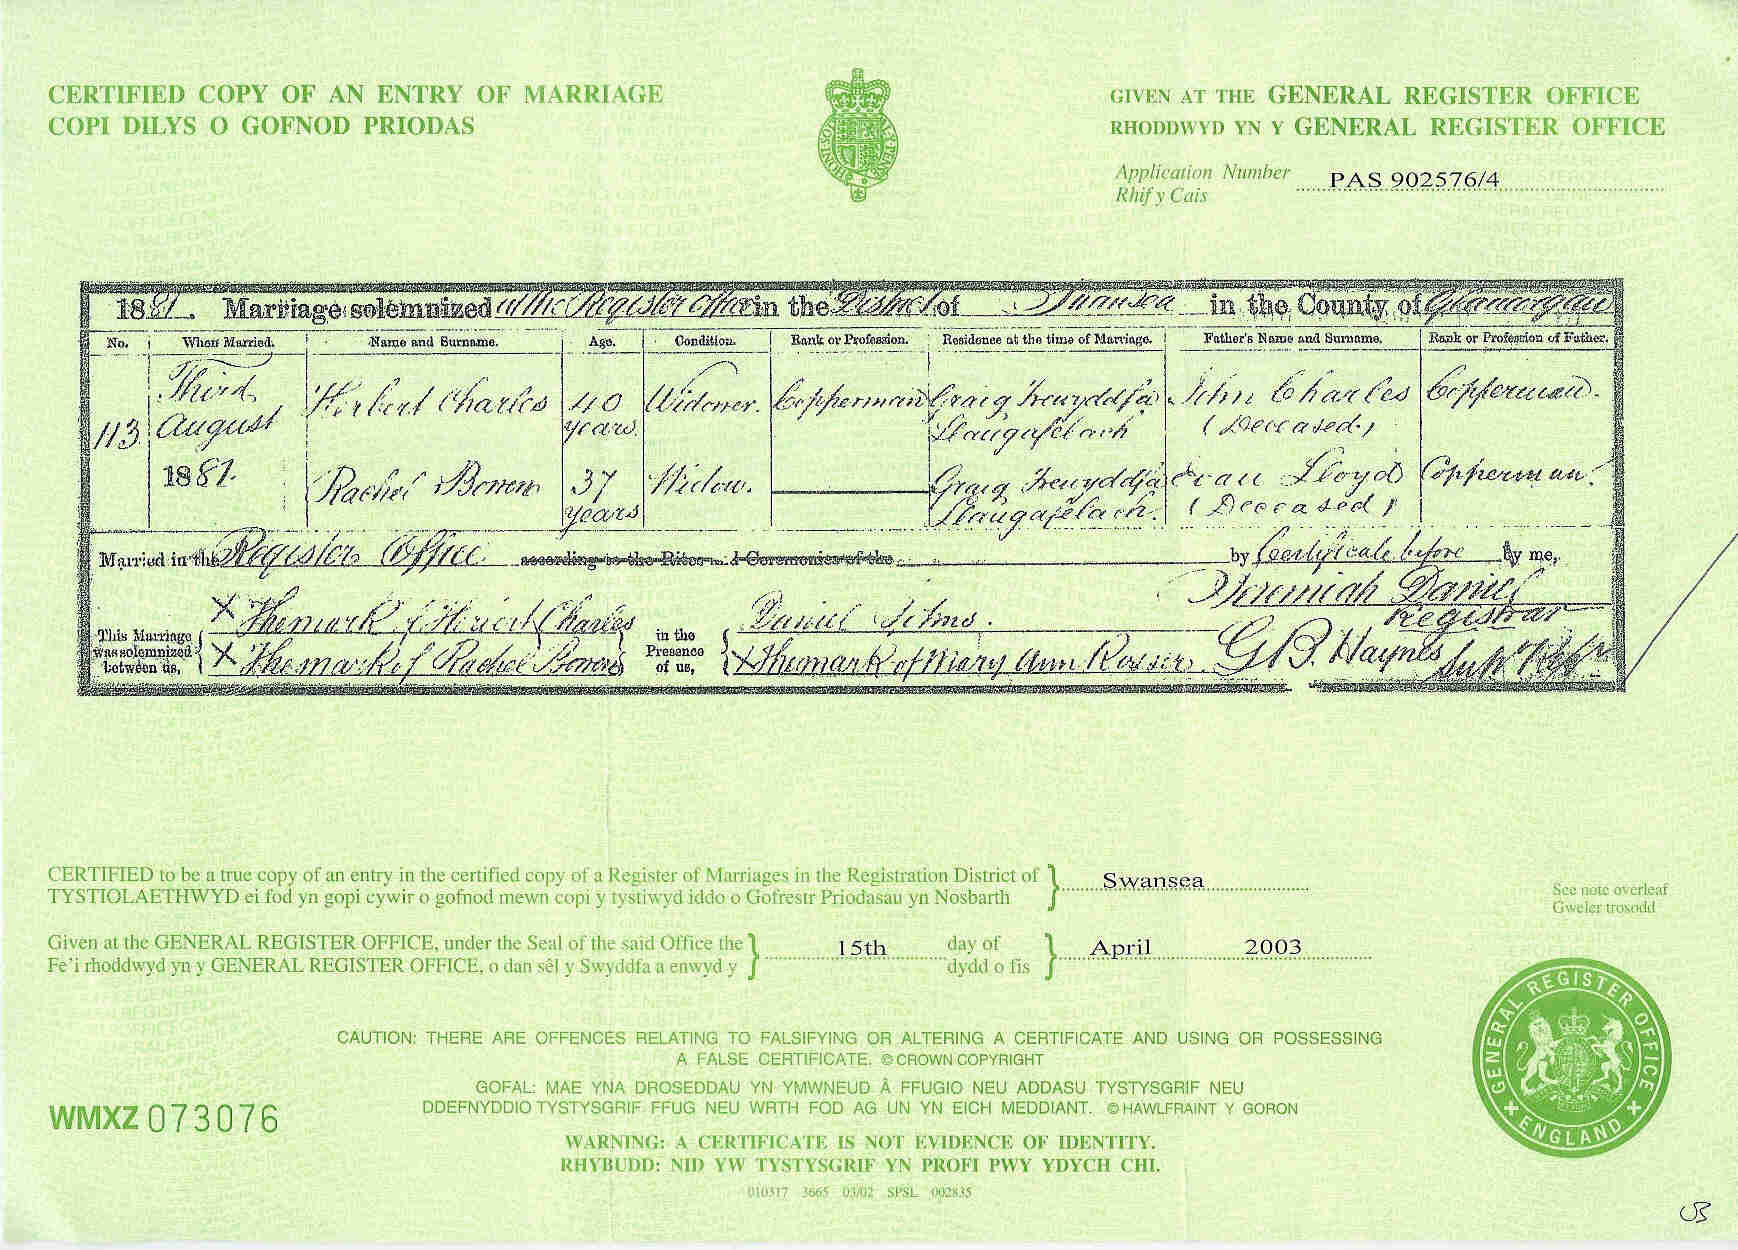 CERTIFIED COPY OF AN ENTRY OF MARRIAGE
COPI DILYS O GOFNOD PRIODAS
GIVEN AT THE GENERAL REGISTER OFFICE
RHODDWYD YN Y GENERAL REGISTER OFFICE
Application Number PAS 902576/4
Rhif y Cais
1881. Marriage solemnized at the Register Office in the District of Swansea in the County of Glamorgan
No. When Married. Name and Surname. Age. Condition. Rank or Profession. Residence at the time of Marriage. Father's Name and Surname. Rank or Profession of Father.
113 Third August 1881. Herbert Charles 40 years Widower. Copperman Graig Trewyddfa Llangafelach John Charles (Deceased) Copperman.
Rachel Bowen 37 years Widow. Graig Trewyddfa Llangafelach. Evan Lloyd (Deceased) Copperman.
Married in the Register Office according to the Rites and Ceremonies of the by Certificate before by me,
This Marriage was solemnized between us, X The mark of Herbert Charles
X The mark of Rachel Bowen
in the Presence of us, Daniel Johns.
X The mark of Mary Ann Rosser
Jeremiah Daniel
Registrar
G B. Haynes Supt Regr
CERTIFIED to be a true copy of an entry in the certified copy of a Register of Marriages in the Registration District of Swansea
TYSTIOLAETHWYD ei fod yn gopi cywir o gofnod mewn copi y tystiwyd iddo o Gofrestr Priodasau yn Nosbarth
See note overleaf
Gweler trosodd
Given at the GENERAL REGISTER OFFICE, under the Seal of the said Office the 15th day of April 2003
Fe'i rhoddwyd yn y GENERAL REGISTER OFFICE, o dan sêl y Swyddfa a enwyd y dydd o fis
CAUTION: THERE ARE OFFENCES RELATING TO FALSIFYING OR ALTERING A CERTIFICATE AND USING OR POSSESSING
A FALSE CERTIFICATE. © CROWN COPYRIGHT
GOFAL: MAE YNA DROSEDDAU YN YMWNEUD Â FFUGIO NEU ADDASU TYSTYSGRIF NEU
DDEFNYDDIO TYSTYSGRIF FFUG NEU WRTH FOD AG UN YN EICH MEDDIANT. © HAWLFRAINT Y GORON
WARNING: A CERTIFICATE IS NOT EVIDENCE OF IDENTITY.
RHYBUDD: NID YW TYSTYSGRIF YN PROFI PWY YDYCH CHI.
WMXZ 073076
010317 3665 03/02 SPSL 002835
GENERAL REGISTER OFFICE
ENGLAND